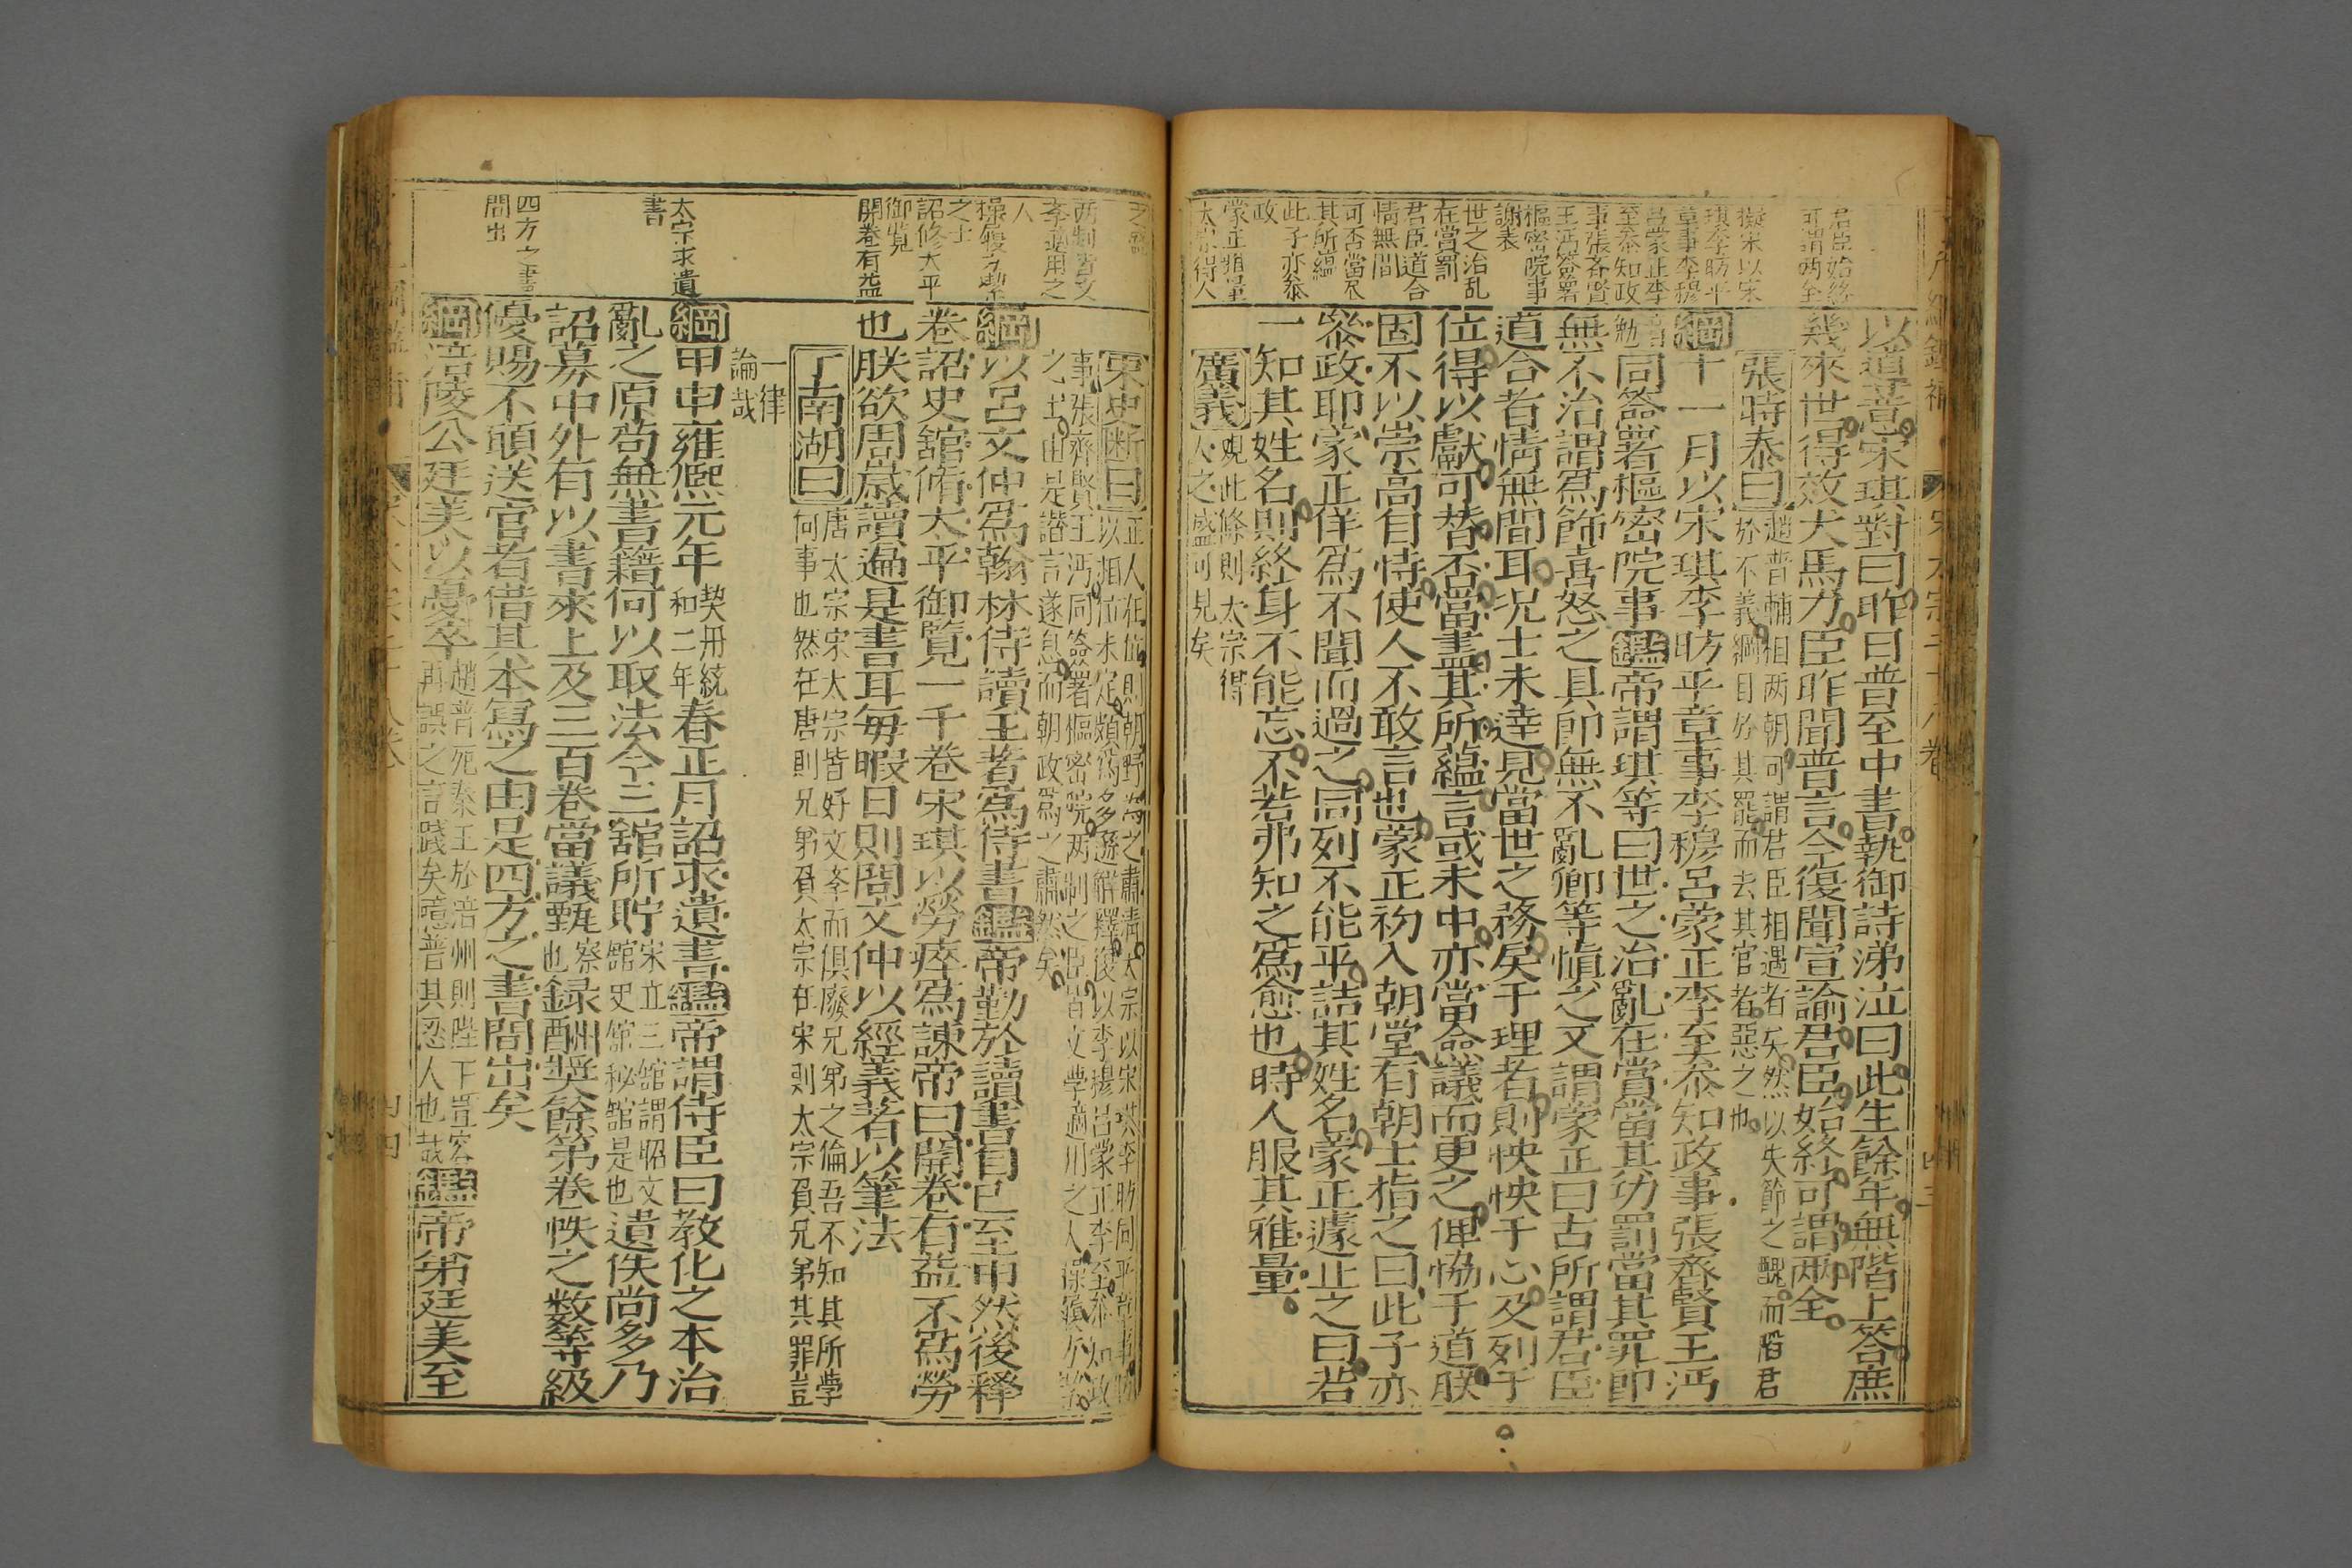 君臣始終
可謂両全
擬宋以宋
琪李昉平
章事李穆
呂蒙正李
至叅知政
事張齊賢
王沔簽署
樞密院事
謝表
世之治乱
在賞罰
君臣道合
情無間
可否當尽
其所蘊
此子亦叅
政
蒙正雅量
太宗得人
以道普意宋琪對曰昨日普至中書執御詩涕泣曰此生餘年無階上答庶
幾來世得效犬馬力臣昨聞普言今復聞宣諭君臣始終可謂两全
張時泰曰
趙普輔相两朝可謂君臣相遇者矣然以失節之醜而陷君
於不義綱目於其罷而去其官者惡之也
綱十一月以宋琪李昉平章事李穆呂蒙正李至叅知政事張齊賢王沔
同簽署樞密院事鑑帝謂琪等曰世之治亂在賞當其功罰當其罪即
無不治謂爲飾喜怒之具即無不亂卿等愼之又謂蒙正曰古所謂君臣
道合者情無間耳况士未逹見當世之務矣于理者則怏怏于心及列于
位得以獻可替否當盡其所蘊言或未中亦當僉議而更之俾恊于道朕
固不以崇高自恃使人不敢言也蒙正初入朝堂有朝士指之曰此子亦
叅政耶蒙正佯爲不聞而過之同列不能平詰其姓名蒙正遽止之曰若
一知其姓名則終身不能忘不若弗知之爲愈也時人服其雅量
廣義
观此條則太宗得
人之盛可見矣
两制皆文
李適用之
人
操履方潔
之士
詔修太平
御覽
開卷有益
太宗求遺
書
四方之書
間出
宋史断曰
正人在位則朝野為之肅清太宗以宋琪李昉同平章事
以相位未定頗為多遜解釋後以李穆呂蒙正李至叅知政
事張齊賢王沔同簽署樞密院两制之臣皆文學適用之人操履方潔
之士由是譛言遂息而朝政為之肅然矣
綱以呂文仲爲翰林侍讀王著爲侍書鑑帝勤於讀書自巳至申然後释
卷詔史舘脩太平御覽一千卷宋琪以勞瘁爲諫帝曰開卷有益不爲勞
也朕欲周歲讀遍是書耳每暇日則問文仲以經義著以筆法
丁南湖曰
唐太宗宋太宗皆好文李而俱廢兄弟之倫吾不知其所學
何事也然在唐則兄弟負太宗在宋則太宗負兄弟其罪豈
一律
論哉
綱甲申雍熈元年
契丹統
和二年
春正月詔求遺書鑑帝謂侍臣曰教化之本治
亂之原苟無書籍何以取法今三舘所貯
宋立三舘謂昭文
舘史舘秘舘是也
遺佚尚多乃
詔募中外有以書來上及三百卷當議甄
察
也
録酬奬餘第卷帙之数等級
優賜不頋送官者借其本寫之由是四方之書間出矣
綱涪陵公廷美以憂卒
趙普死秦王於涪州則陛下豈容
再誤之言踐矣噫普其忍人也哉
鑑帝弟廷美至